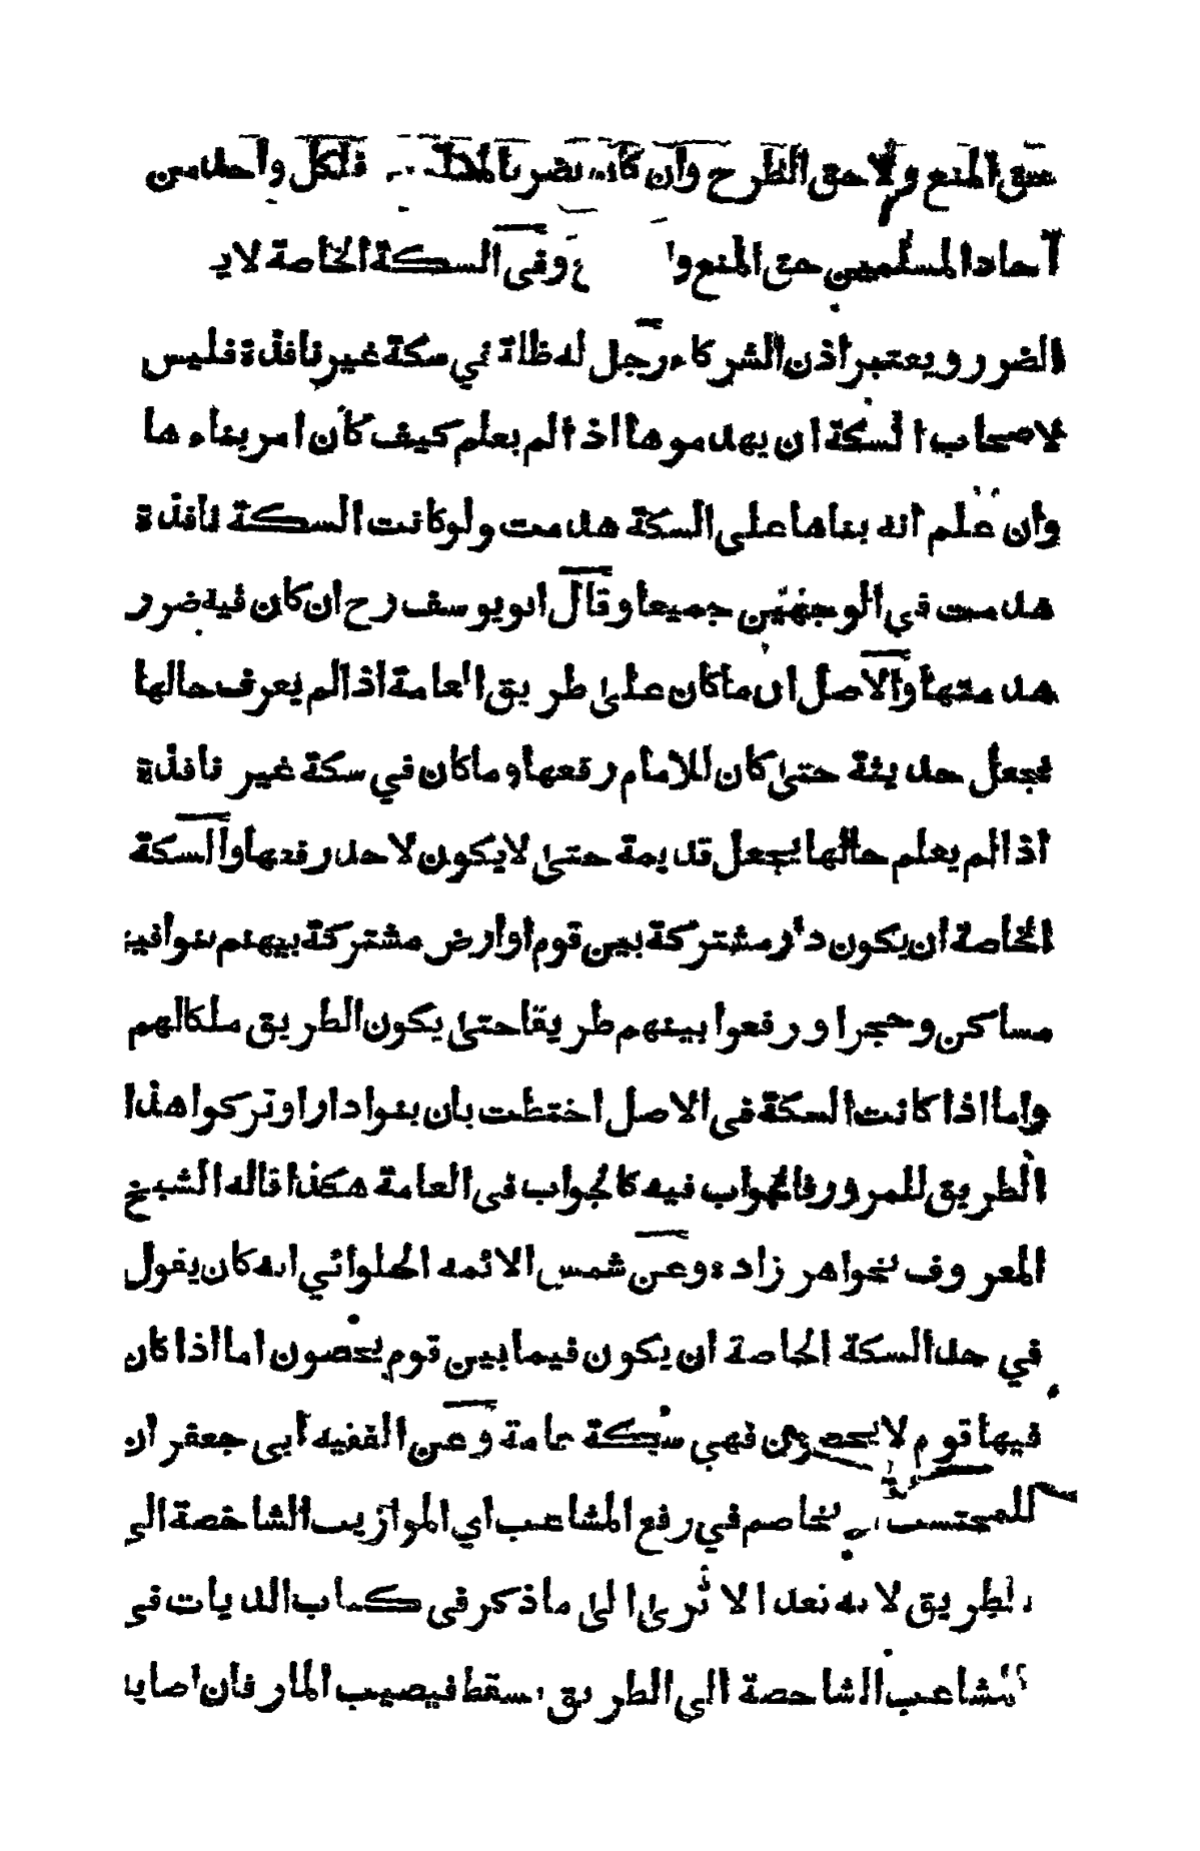 حق المنع ولا حق الطرح وان كان يضر بالمارة فلكل واحد من
آحاد المسلمين حق المنع وفى السكة الخاصة لا
الضرر ويعتبر اذن الشركاء رجل له ظلة في سكة غير نافذة فليس
لاصحاب السكة ان يهدموها اذا لم يعلم كيف كان امر بناءها
وان علم انه بناها على السكة هدمت ولو كانت السكة نافذة
هدمت في الوجهين جميعا وقال ابو يوسف رح ان كان فيه ضرر
هدمتها والاصل ان ما كان على طريق العامة اذا لم يعرف حالها
فجعل حديثة حتى كان للامام رفعها وما كان في سكة غير نافذة
اذا لم يعلم حالها يجعل قديمة حتى لا يكون لاحد رفعها والسكة
الخاصة ان يكون دار مشتركة بين قوم او ارض مشتركة بينهم بنوا فيها
مساكن وحجرا ورفعوا بينهم طريقا حتى يكون الطريق ملكا لهم
واما اذا كانت السكة فى الاصل اختطت بان بنوا دارا وتركوا هذا
الطريق للمرور فالجواب فيه كالجواب فى العامة هكذا قاله الشيخ
المعروف بخواهر زاده وعن شمس الائمه الحلوائي انه كان يقول
في حد السكة الخاصة ان يكون فيما بين قوم يحصون اما اذا كان
فيها قوم لا يحصون فهي سكة عامة وعن الفقيه أبى جعفر ان
للمحتسب يخاصم في رفع المشاعب اي الموازيب الشاخصة الى
الطريق لانه تعد الا ترى الى ما ذكر فى كتاب الديات فى
المشاعب الشاخصة الى الطريق سقط فيصيب المار فان اصابه